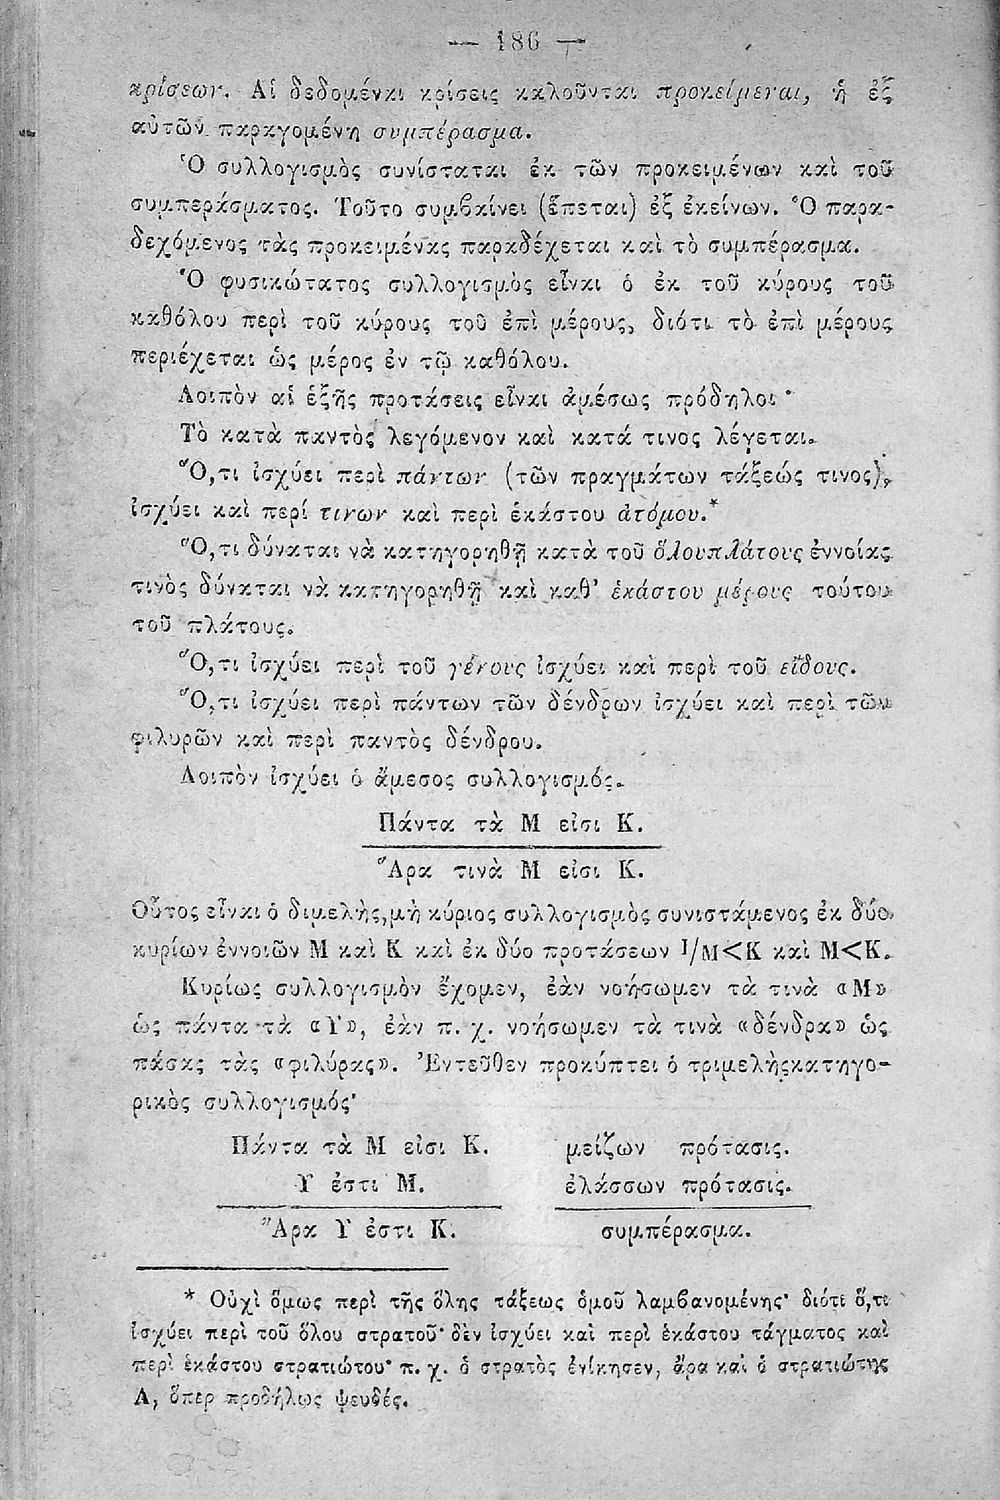 — 186 —
κρίσεων. Αἱ δεδομέναι κρίσεις καλοῦνται προκείμεναι, ἡ ἐξ
αὐτῶν παραγομένη συμπέρασμα.
Ὁ συλλογισμὸς συνίσταται ἐκ τῶν προκειμένων καὶ τοῦ
συμπεράσματος. Τοῦτο συμβαίνει (ἕπεται) ἐξ ἐκείνων. Ὁ παρα-
δεχόμενος τὰς προκειμένας παραδέχεται καὶ τὸ συμπέρασμα.
Ὁ φυσικώτατος συλλογισμὸς εἶναι ὁ ἐκ τοῦ κύρους τοῦ
καθόλου περὶ τοῦ κύρους τοῦ ἐπὶ μέρους, διότι τὸ ἐπὶ μέρους
περιέχεται ὡς μέρος ἐν τῷ καθόλου.
Λοιπὸν αἱ ἑξῆς προτάσεις εἶναι ἀμέσως πρόδηλοι·
Τὸ κατὰ παντὸς λεγόμενον καὶ κατά τινος λέγεται.
Ὅ,τι ἰσχύει περὶ πάντων (τῶν πραγμάτων τάξεώς τινος),
ἰσχύει καὶ περί τινων καὶ περὶ ἑκάστου ἀτόμου.*
Ὅ,τι δύναται νὰ κατηγορηθῇ κατὰ τοῦ ὅλου πλάτους ἐννοίας
τινὸς δύναται νὰ κατηγορηθῇ καὶ καθ' ἑκάστου μέρους τούτου
τοῦ πλάτους.
Ὅ,τι ἰσχύει περὶ τοῦ γένους ἰσχύει καὶ περὶ τοῦ εἴδους.
Ὅ,τι ἰσχύει περὶ πάντων τῶν δένδρων ἰσχύει καὶ περὶ τῶν
φιλυρῶν καὶ περὶ παντὸς δένδρου.
Λοιπὸν ἰσχύει ὁ ἄμεσος συλλογισμός.
Πάντα τὰ Μ εἰσι Κ.
Ἄρα τινὰ Μ εἰσι Κ.
Οὗτος εἶναι ὁ διμελὴς, μὴ κύριος συλλογισμὸς συνιστάμενος ἐκ δύο
κυρίων ἐννοιῶν Μ καὶ Κ καὶ ἐκ δύο προτάσεων 1/Μ<Κ καὶ Μ<Κ.
Κυρίως συλλογισμὸν ἔχομεν, ἐὰν νοήσωμεν τὰ τινὰ «Μ»
ὡς πάντα τὰ «Υ», ἐὰν π. χ. νοήσωμεν τὰ τινὰ «δένδρα» ὡς
πάσας τὰς «φιλύρας». Ἐντεῦθεν προκύπτει ὁ τριμελὴς κατηγο-
ρικὸς συλλογισμός·
Πάντα τὰ Μ εἰσι Κ. μείζων πρότασις.
Υ ἐστι Μ. ἐλάσσων πρότασις.
Ἄρα Υ ἐστι Κ. συμπέρασμα.
* Οὐχὶ ὅμως περὶ τῆς ὅλης τάξεως ὁμοῦ λαμβανομένης· διότι ὅ,τι
ἰσχύει περὶ τοῦ ὅλου στρατοῦ· δὲν ἰσχύει καὶ περὶ ἑκάστου τάγματος καὶ
περὶ ἑκάστου στρατιώτου· π. χ. ὁ στρατὸς ἐνίκησεν, ἄρα καὶ ὁ στρατιώτης
Α, ὅπερ προδήλως ψευδές.